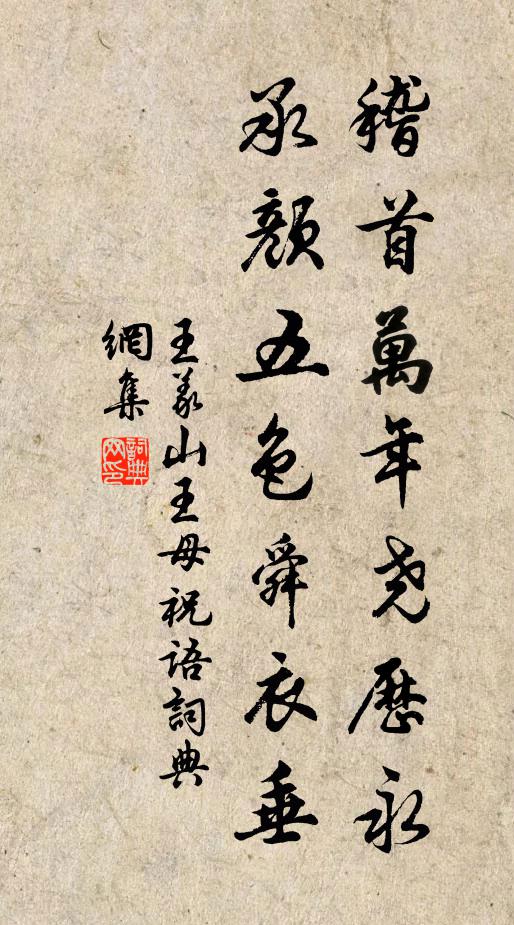 稽首萬年尧歷永
承顏五色舜衣垂
王義山王母祝语詞典
網集
詞典网印